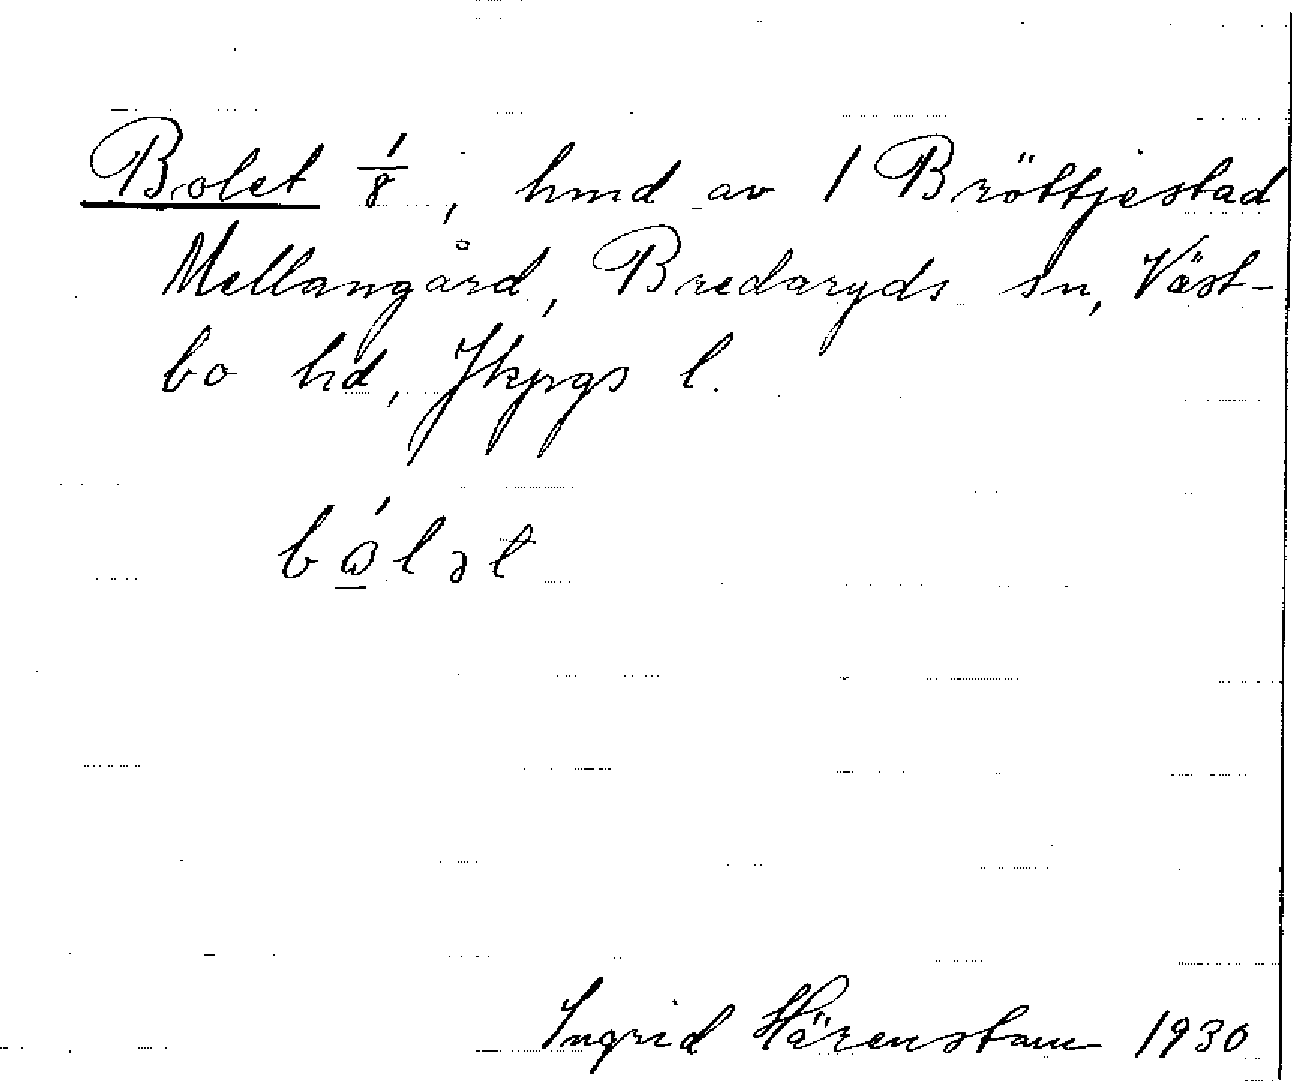 Bolet 1/8, hmd av 1 Bröttjestad
Mellangård, Bredaryds sn, Väst-
bo hd, Jkpgs l.
bɷ̲́lət
Ingrid Härenstam 1930